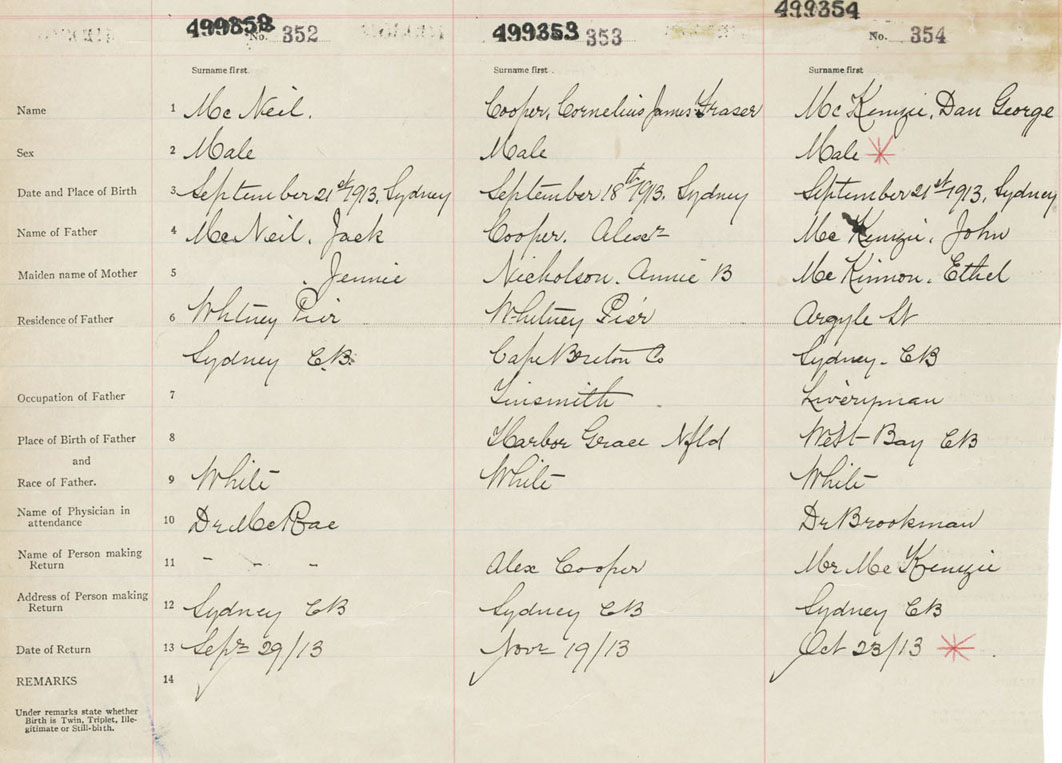 499352 499353 499354
No. 352 353 No. 354
Surname first. Surname first. Surname first
Name 1 McNeil. Cooper, Cornelius James Fraser McKenzie, Dan George
Sex 2 Male Male Male
Date and Place of Birth 3 September 21st 1913, Sydney September 18th 1913, Sydney September 21st 1913, Sydney
Name of Father 4 McNeil, Jack Cooper. Alexr McKenzie, John
Maiden name of Mother 5 , Jennie Nicholson. Annie B McKinnon, Ethel
Residence of Father 6 Whitney Pier Whitney Pier Argyle St
Sydney C.B. Cape Breton Co Sydney - CB
Occupation of Father 7 Tinsmith Liveryman
Place of Birth of Father 8 Harbor Grace Nfld West-Bay CB
and
Race of Father. 9 White White White
Name of Physician in
attendance 10 Dr McRae Dr Brookman
Name of Person making
Return 11 - - - Alex Cooper Mr McKenzie
Address of Person making
Return 12 Sydney CB Sydney CB Sydney CB
Date of Return 13 Sepr 29/13 Novr 19/13 Oct 23/13
REMARKS 14
Under remarks state whether
Birth is Twin, Triplet, Ille-
gitimate or Still-birth.